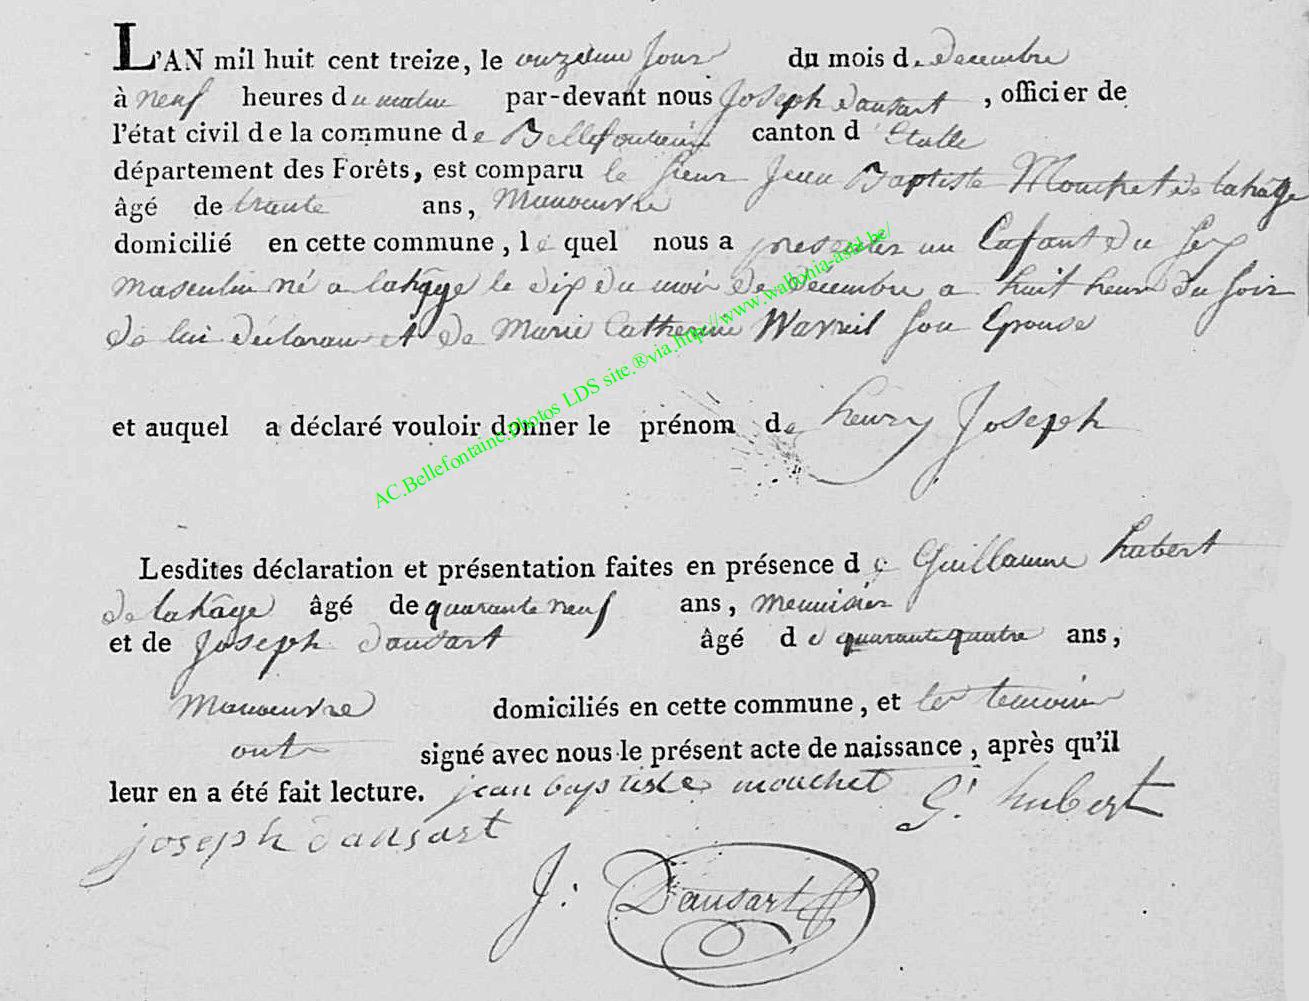 L'AN mil huit cent treize, le onzeime Jour du mois de Decembre
à neuf heures du matin par-devant nous Joseph dansart, officier de
l'état civil de la commune de Bellefontaine canton d'Etalle
département des Forêts, est comparu le Sieur Jean Baptiste Mouchet de lahage
âgé de trante ans, Manoeuvre
domicilié en cette commune, lequel nous a presenter un Enfant du Sex
masculin né a lahage le dix du mois de décembre a huit heur du soir
de lui déclarant et de Marie Catherine Wavreil son Epouse
et auquel a déclaré vouloir donner le prénom de henry Joseph
Lesdites déclaration et présentation faites en présence de Guillaume hubert
de lahage âgé de quarante neuf ans, menuisier
et de Joseph dansart âgé de quarante quatre ans,
Manoeuvre domiciliés en cette commune, et les temoins
ont signé avec nous le présent acte de naissance, après qu'il
leur en a été fait lecture. jean baptiste mouchet G. hubert
joseph dansart
J: Dansart
AC.Bellefontaine.Photos LDS site.®via http://www.wallonia-asbl.be/